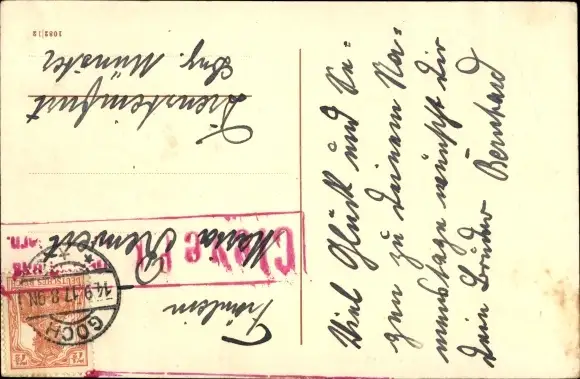 Viel Glück und Se-
gen zu Deinem Na-
menstage wünscht Dir
Dein Bruder Bernhard
Fräulein
Maria
Burgsteinfurt
Bez. Münster
Cleve
GOCH
14.9.17.8-9N
7½
1082/12